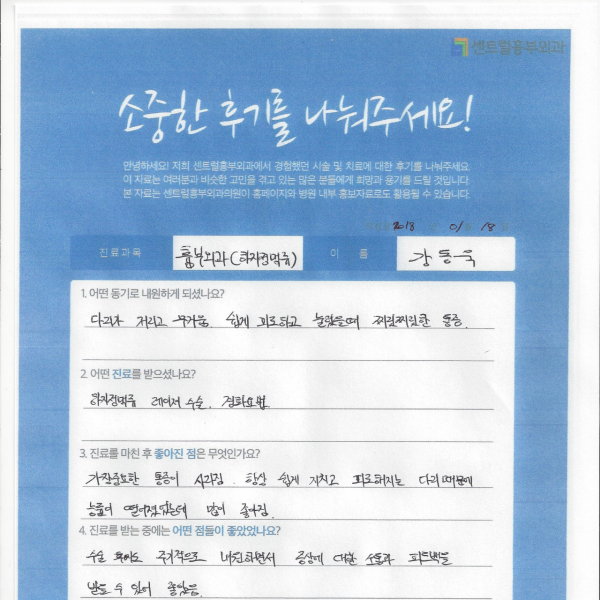 센트럴흉부외과
소중한 후기를 나눠주세요!
안녕하세요! 저희 센트럴흉부외과에서 경험했던 시술 및 치료에 대한 후기를 나눠주세요
이 치료는 여러분과 비슷한 고민을 겪고 있는 많은 분들에게 희망과 용기를 드릴 것입니다.
본 자료는 센트럴흉부외과의원이 홈페이지와 병원 내부 홍보자료로도 활용될 수 있습니다.
2018 01 18
진료과목 흉부외과(하지정맥류) 이 름 강동욱
1. 어떤 동기로 내원하게 되셨나요?
다리가 저리고 무거움. 쉽게 피로하고 눌렀을때 찌릿찌릿한 통증.
2. 어떤 진료를 받으셨나요?
하지정맥류 레이저 수술. 경화요법.
3. 진료를 마친 후 좋아진 점은 무엇인가요?
가장중요한 통증이 사라짐. 항상 쉽게 지치고 피로해지는 다리때문에
능률이 떨어졌었는데 많이 좋아짐.
4. 진료를 받는 중에는 어떤 점들이 좋았었나요?
수술 후에도 주기적으로 내원하면서 증상에 대한 소통과 피드백을
받을 수 있어 좋았음.